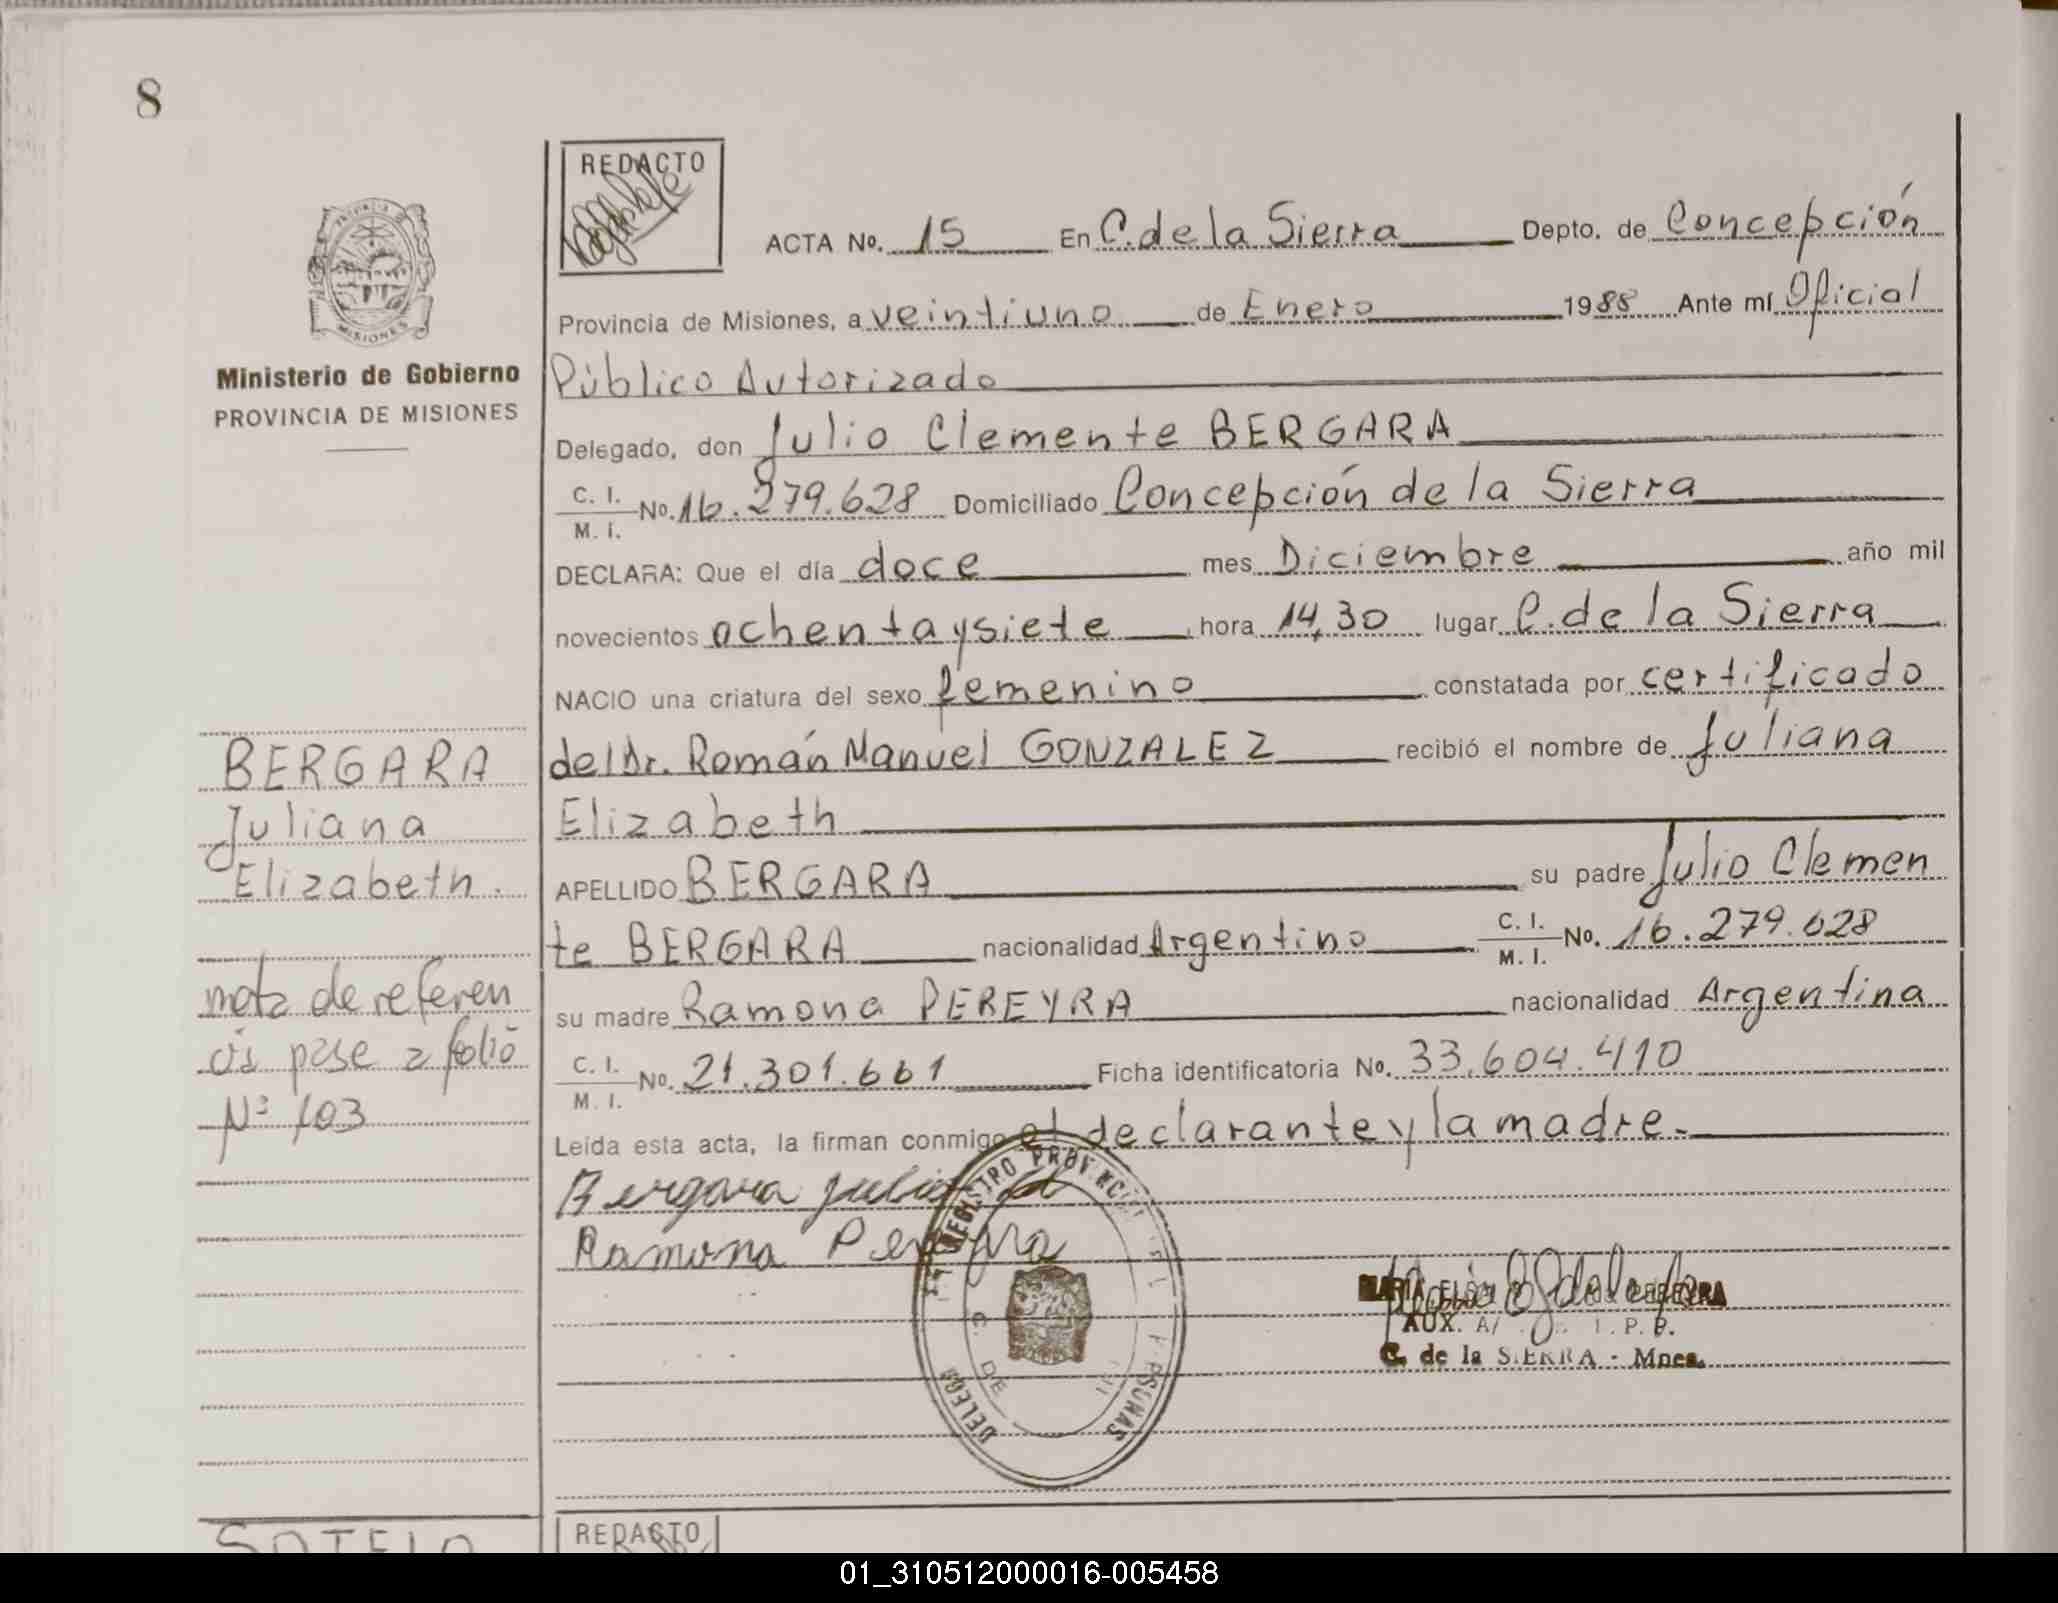 8
REDACTO
ACTA No. 15 En C. de la Sierra Depto. de Concepción
Provincia de Misiones, a veintiuno de Enero 1988 Ante mí Oficial
Ministerio de Gobierno
PROVINCIA DE MISIONES
Público Autorizado
Delegado, don Julio Clemente BERGARA
C. I.
M. I. No. 16.279.628 Domiciliado Concepción de la Sierra
DECLARA: Que el día doce mes Diciembre año mil
novecientos ochentaysiete hora 14,30 lugar C. de la Sierra
NACIO una criatura del sexo femenino constatada por certificado
del Dr. Román Manuel GONZALEZ recibió el nombre de Juliana
Elizabeth
APELLIDO BERGARA su padre Julio Clemen
te BERGARA nacionalidad Argentino C. I. M. I. No. 16.279.628
su madre Ramona PEREYRA nacionalidad Argentina
C. I.
M. I. No. 21.301.661 Ficha identificatoria No. 33.604.410
Leída esta acta, la firman conmigo el declarante y la madre.
Bergara Julio
Ramona Pereyra
BERGARA
Juliana
Elizabeth.
nota de referen
cia pase a folio
Nº 103
REGISTRO PROVINCIAL
PERSONAS
C. de la SIERRA - Mnes.
SOTELO
REDACTO
01_310512000016-005458